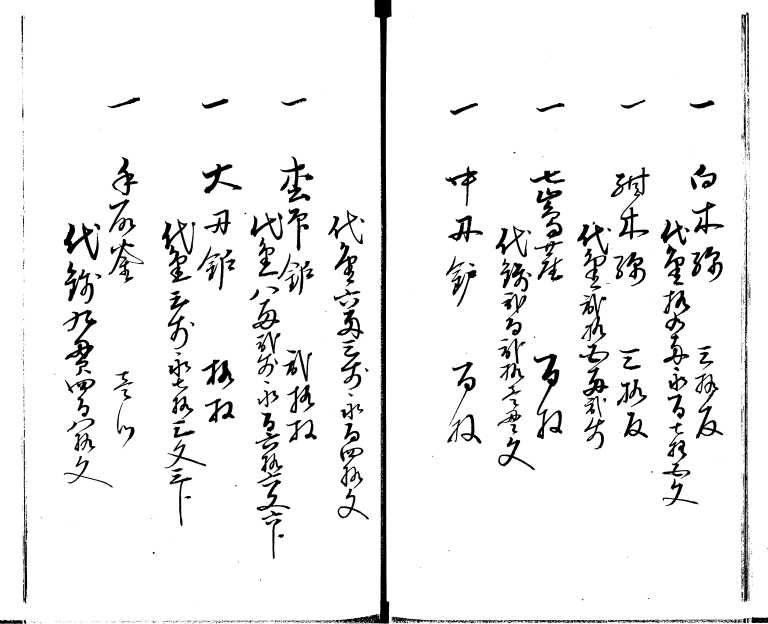 一 白木綿 三拾反
代金拾五両永百七拾五文
一 紺木綿 三拾反
代金弐拾五両弐分
一 七嶋莚 百枚
代銭弐百弐拾壱貫文
一 中丹鈩 百枚
代金六両三分永百四拾文
一 鈩 弐拾枚
代金八両弐分永百六拾六文六卜
一 大丹鈩 拾枚
代金三分永七拾三文三卜
一 手 釜 壱ツ
代銭九貫四百八拾文